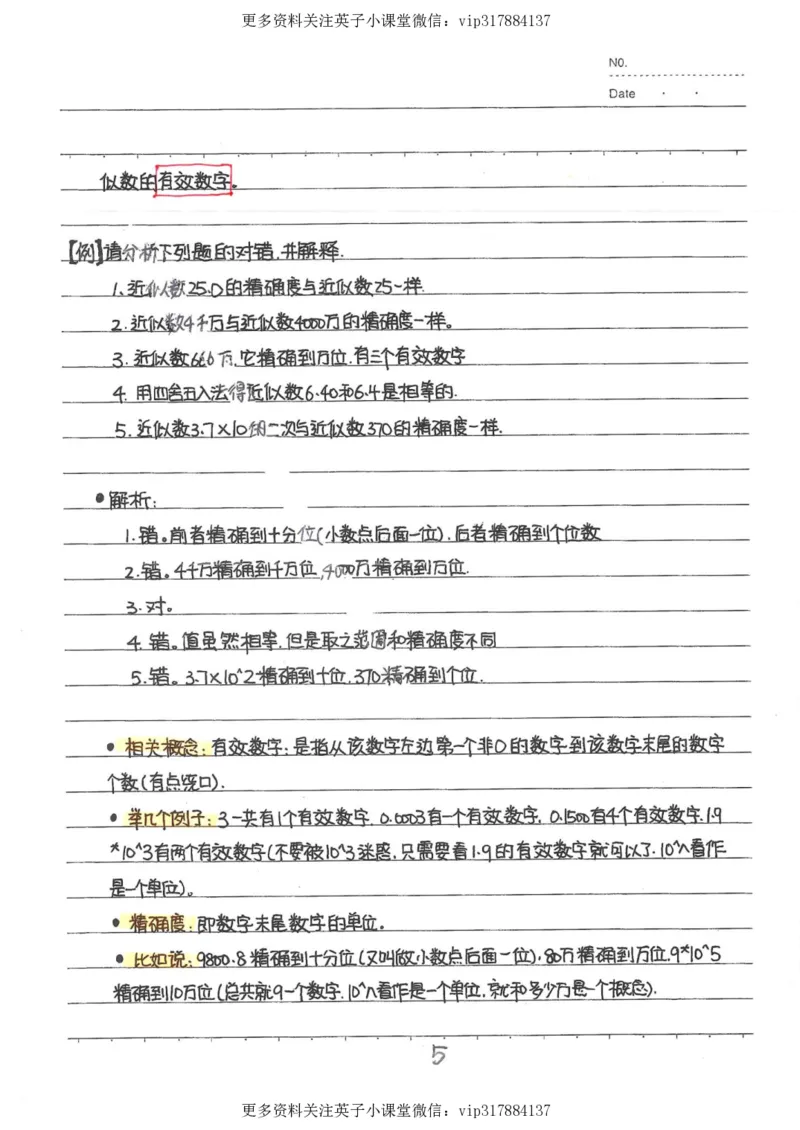 更多资料关注英子小课堂微信：vip317884137
N0.
Date
似数的有效数字。
【例】请分析下列题的对错，并解释.
1、近似数25.0的精确度与近似数25一样.
2.近似数4千万与近似数4000万的精确度一样。
3.近似数660万，它精确到万位.有三个有效数字
4.用四舍五入法得近似数6.40和6.4是相等的.
5.近似数3.7×10的二次与近似数370的精确度一样.
●解析：
1.错。前者精确到十分位(小数点后面一位).后者精确到个位数
2.错。4千万精确到千万位,4000万精确到万位.
3.对。
4.错。值虽然相等.但是取之范围和精确度不同
5.错。3.7×10^2精确到十位.370精确到个位.
●相关概念:有效数字:是指从该数字左边第一个非0的数字到该数字末尾的数字
个数(有点绕口).
●举几个例子:3一共有1个有效数字.0.0003有一个有效数字.0.1500有4个有效数字.1.9
*10^3有两个有效数字(不要被10^3迷惑.只需要看1.9的有效数字就可以了.10^n看作
是一个单位)。
●精确度:即数字末尾数字的单位。
●比如说:9800.8精确到十分位(又叫做小数点后面一位).80万精确到万位.9*10^5
精确到10万位(总共就9一个数字.10^n看作是一个单位.就和多少万是一个概念).
5
更多资料关注英子小课堂微信：vip317884137